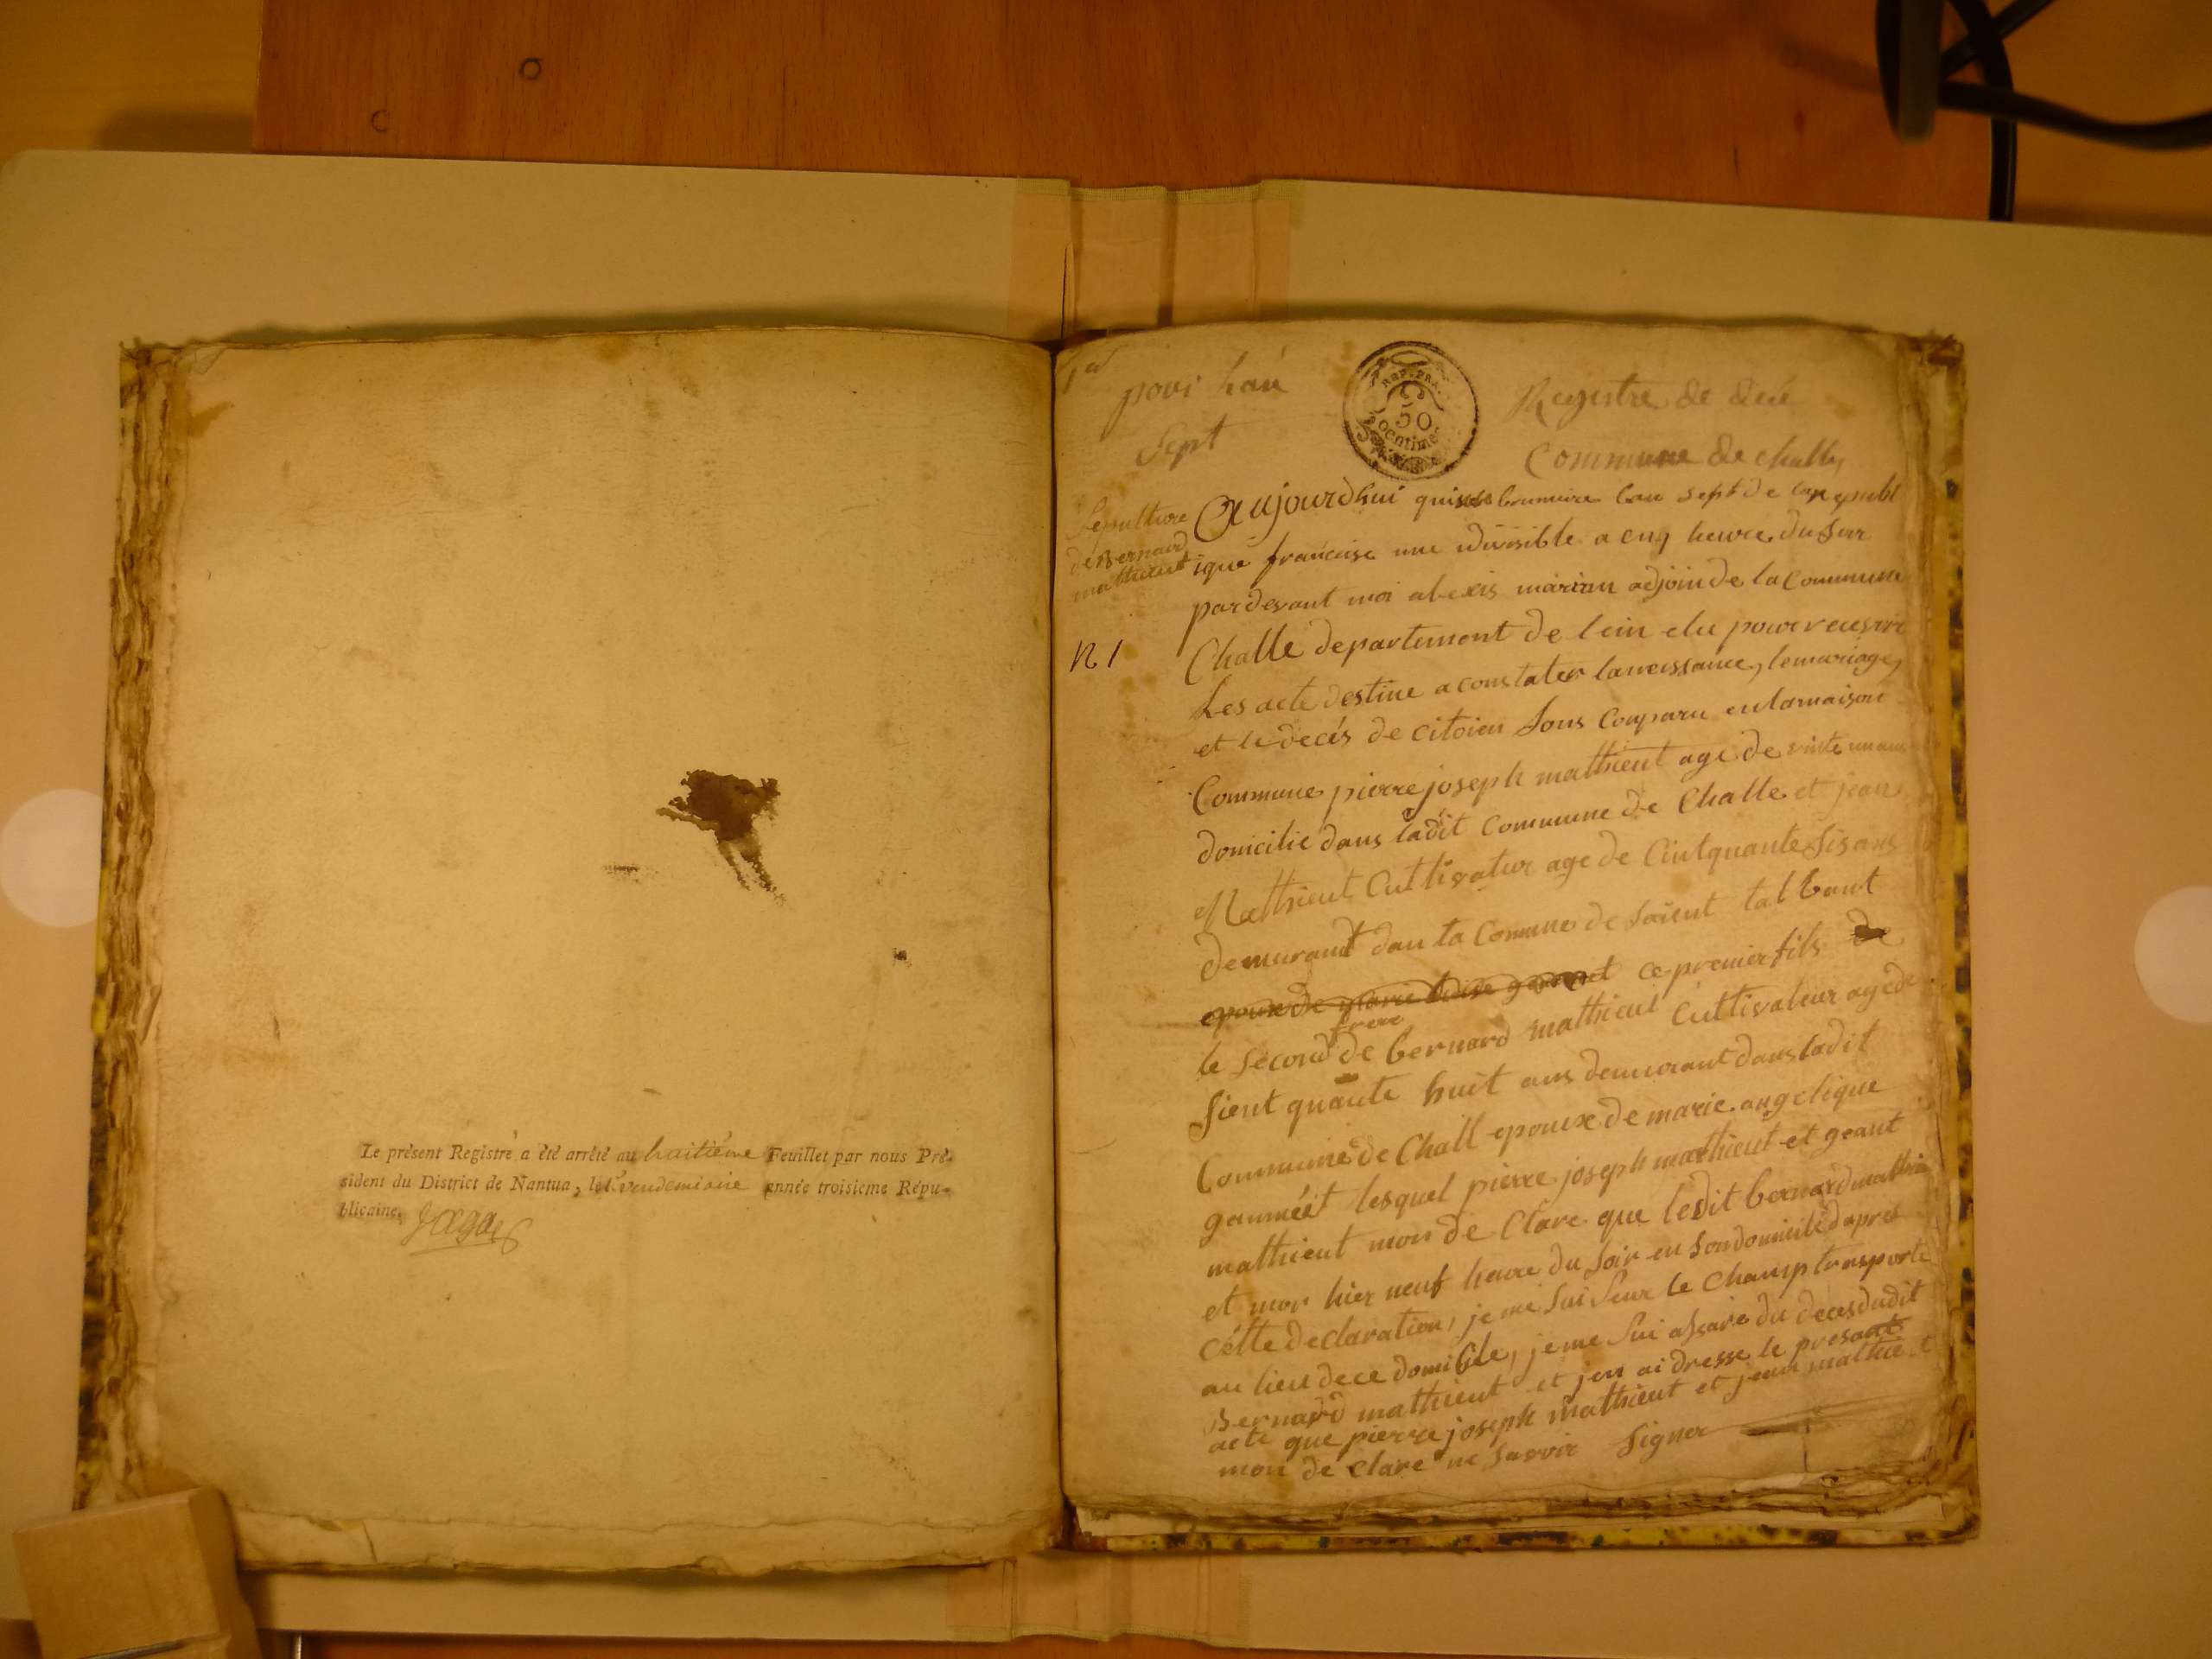 Le présent Registre a été arrêté au huitiéme Feuillet par nous Pré-
sident du District de Nantua, le vendemiaire année troisieme Répu-
blicaine.
pour
Sept
REP. FRA.
50
centime
Registre de
Commune de challe
Sepulture
de Bernard
mathieut
N 1
Aujourdhui quinse brumaire lan sept de la republ
ique francaise une idivisible a cinq heure du soir
pardevant moi alexis adjoin de la Commune
Challe departement de lein elu pour recevoir
Les acte destine a constater la neissance, le mariage,
et le decés de citoien sons Comparu en la maison
Commune pierre joseph mathieut age de vinte un ans
domicilie dans ladit commune de Challe et jean
Mathieut Cultivatur age de Cintquante sis ans
demurant dan la Comune de saient
epoux de marie ce premier fils de
frere
le second de bernard mathieut Cultivateur age de
huit ans demurant dans ladit
Commune de Chall epoux de marie angelique
lesquel pierre joseph mathieut et geant
mathieut mon de Clare que ledit bernard mathieu
et mor hier neuf heure du soir en son domicile dapres
cétte declaration, je me sui seur le Champ transporte
au lieu de ce domicile, je me sui assure du deces dudit
Bernard mathieut et jen ai dresse le presant
acte que pierre joseph mathieut et jean mathieut
mon de Clare ne savoir Signer